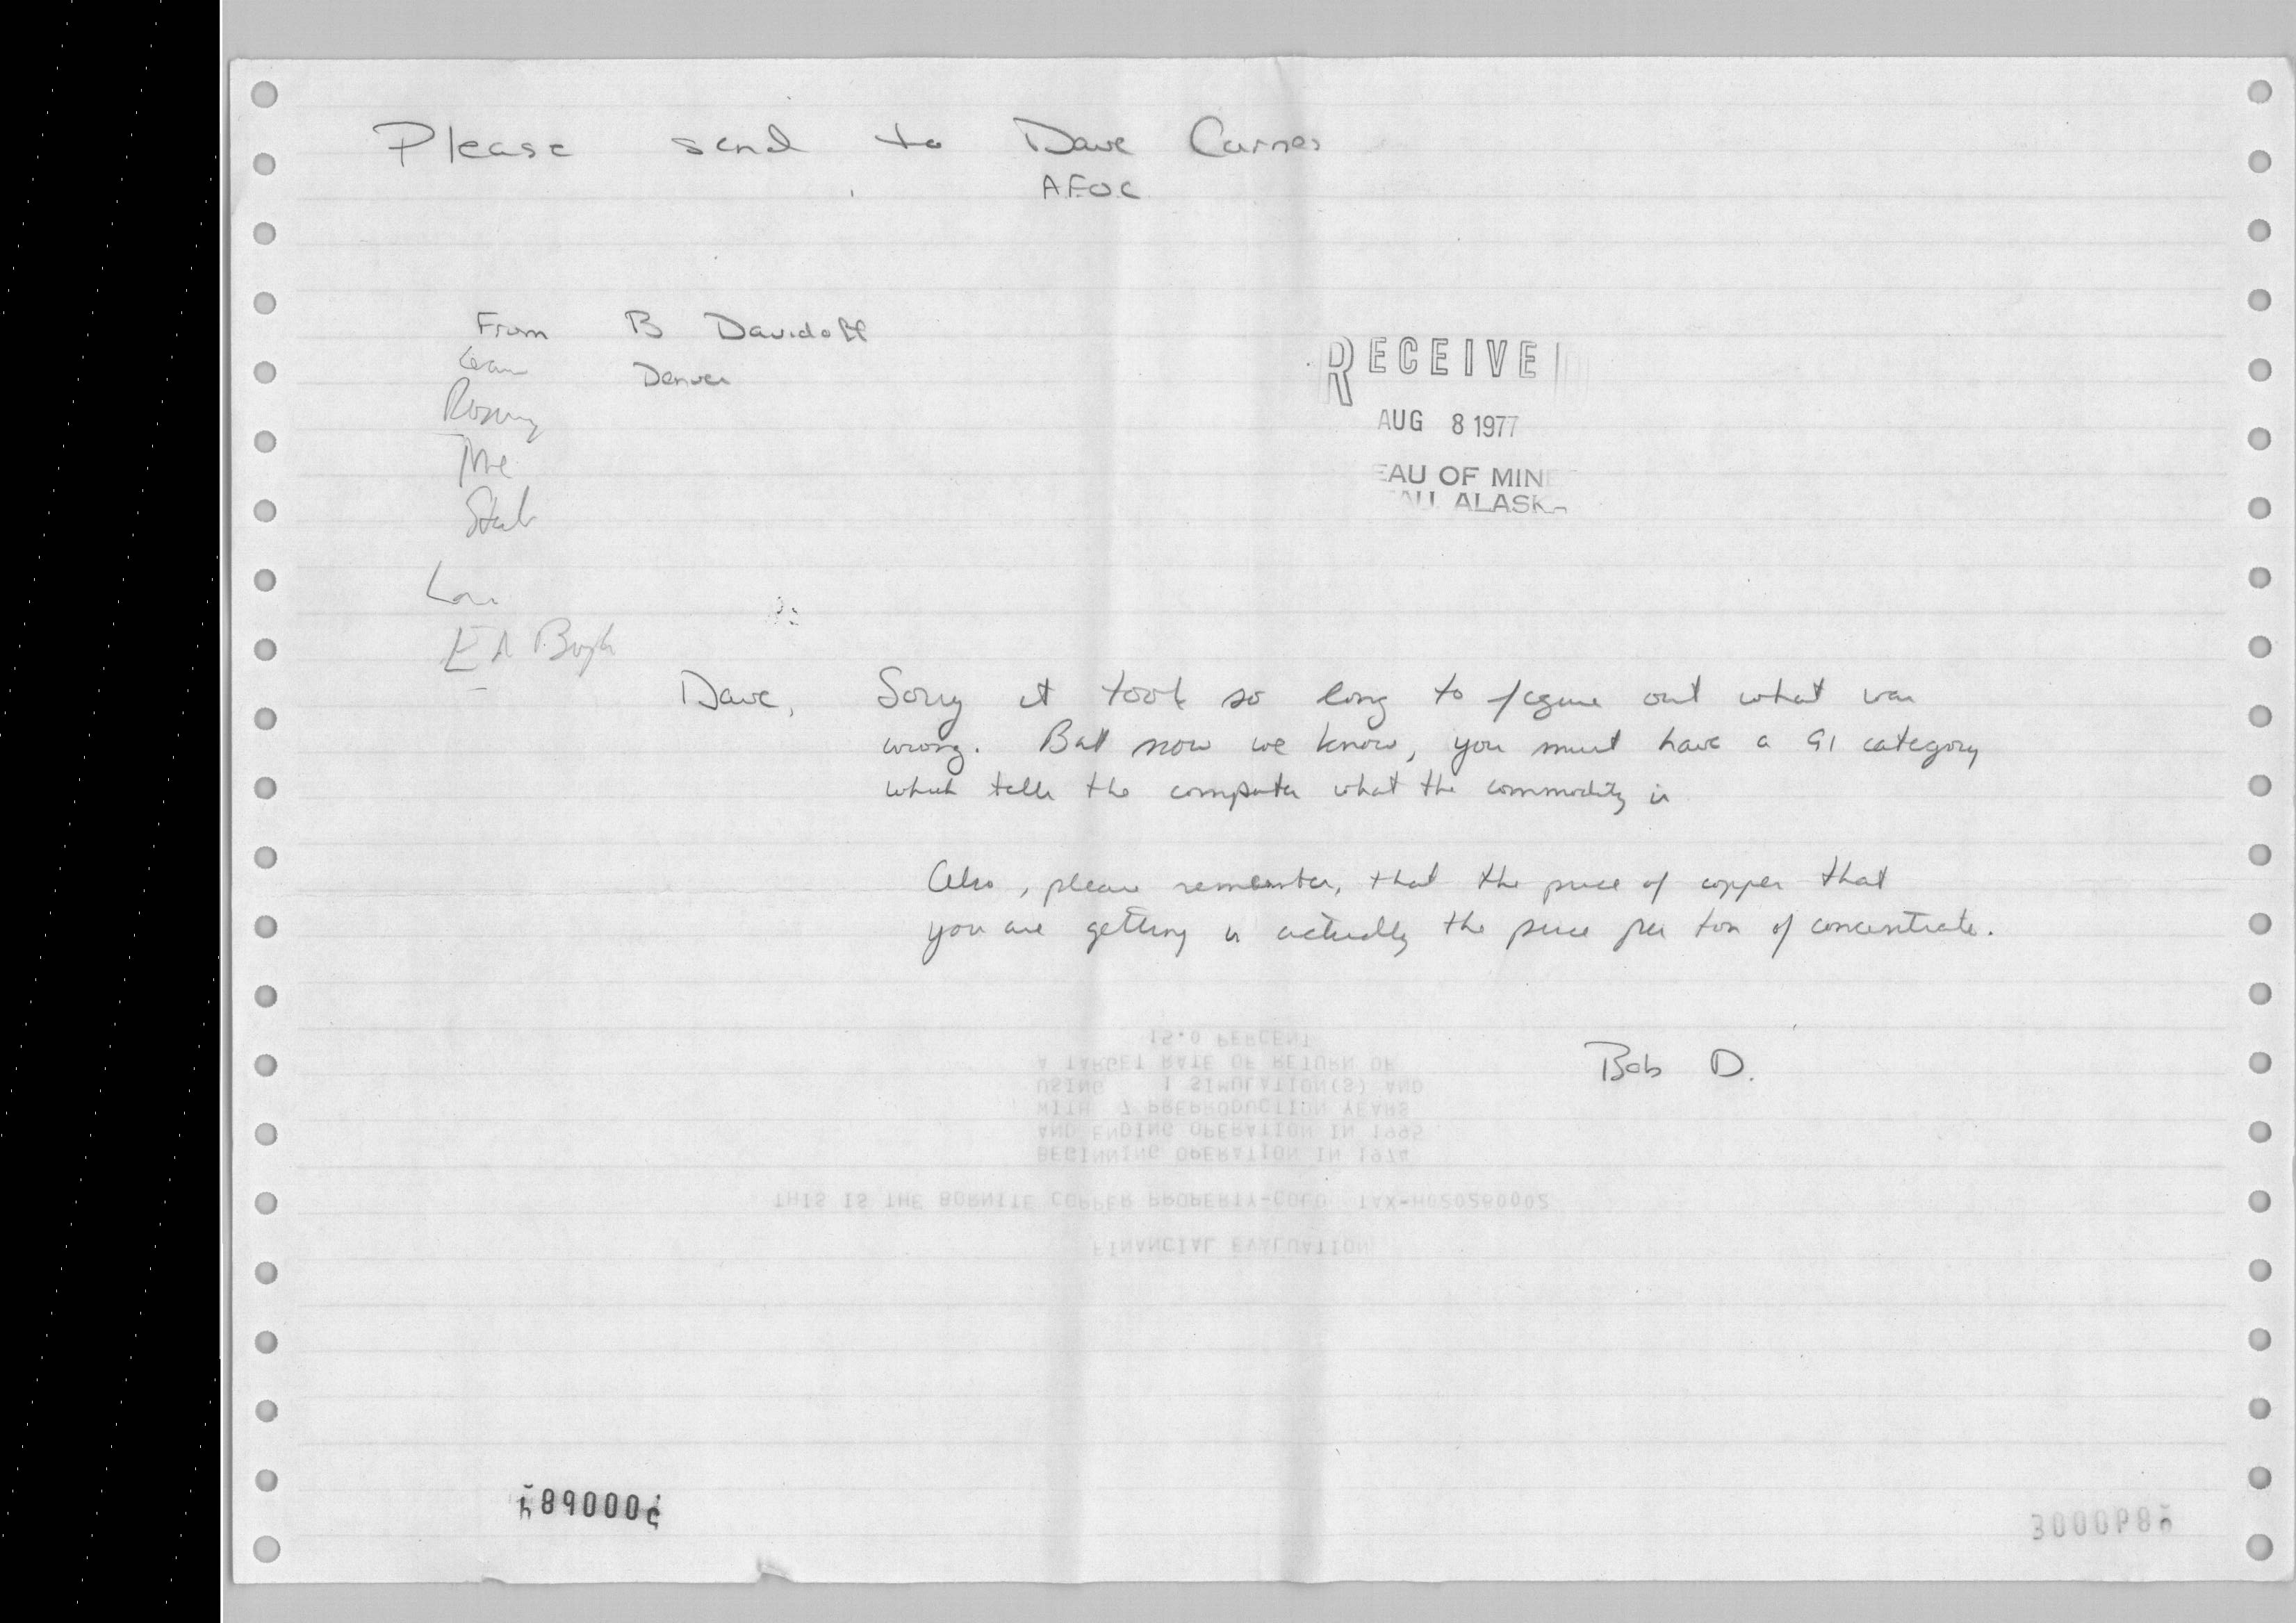 Please send to Dave Carnes
A.F.O.C.
From B Davidoff
Denver
RECEIVE
AUG 8 1977
EAU OF MINE
AU ALASKA
Dave, Sorry it took so long to figure out what was
wrong. But now we know, you must have a 91 category
which tells the computer what the commodity is
Also, please remember, that the price of copper that
you are getting is actually the price per ton of concentrate.
Bob D.
15.0 PERCENT
A TARGET RATE OF RETURN OF
USING 1 SIMULATION(S) AND
WITH 7 PREPRODUCTION YEARS
AND ENDING OPERATION IN 1995
BEGINNING OPERATION IN 1974
THIS IS THE BORNITE COPPER PROPERTY-COLO TAX-H020260002
FINANCIAL EVALUATION